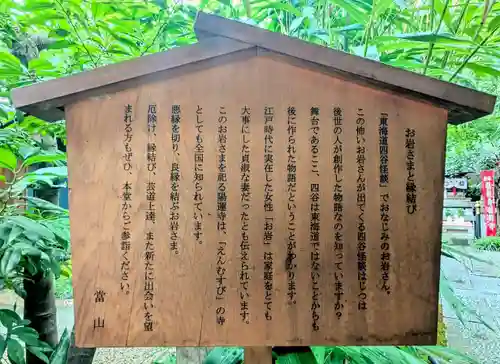 お岩さまと縁結び
「東海道四谷怪談」でおなじみのお岩さん。
この怖いお岩さんが出てくる四谷怪談はじつは
後世の人が創作した物語なのを知っていますか？
舞台であるここ、四谷は東海道ではないことからも
後に作られた物語だということがわかります。
江戸時代に実在した女性「お岩」は家庭をとても
大事にした貞淑な妻だったとも伝えられています。
このお岩さまを祀る陽運寺は、「えんむすび」の寺
としても全国に知られています。
悪縁を切り、良縁を結ぶお岩さま。
厄除け、縁結び、芸道上達、また新たに出会いを望
まれる方もぜひ、本堂からご参詣ください。
当山